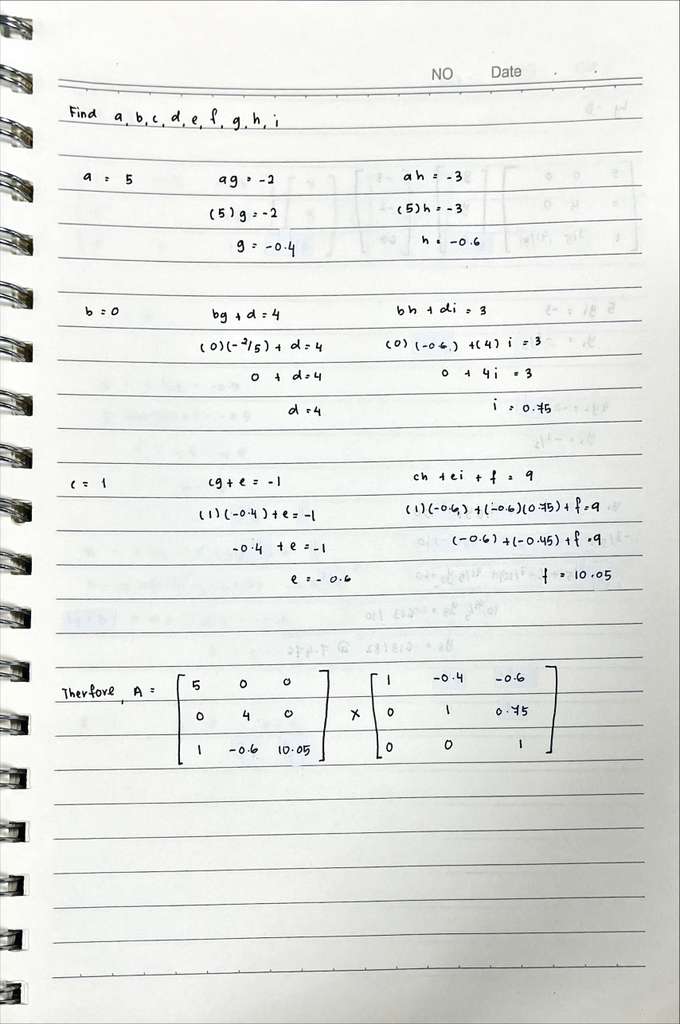 NO Date
Find a, b, c, d, e, f, g, h, i
a = 5 ag = -2 ah = -3
(5)g = -2 (5)h = -3
g = -0.4 h = -0.6
b = 0 bg + d = 4 bh + di = 3
(0)(-2/5) + d = 4 (0)(-0.6) + (4)i = 3
0 + d = 4 0 + 4i = 3
d = 4 i = 0.75
c = 1 cg + e = -1 ch + ei + f = 9
(1)(-0.4) + e = -1 (1)(-0.6) + (-0.6)(0.75) + f = 9
-0.4 + e = -1 (-0.6) + (-0.45) + f = 9
e = -0.6 f = 10.05
5 0 0 1 -0.4 -0.6
Therfore, A = 0 4 0 × 0 1 0.75
1 -0.6 10.05 0 0 1